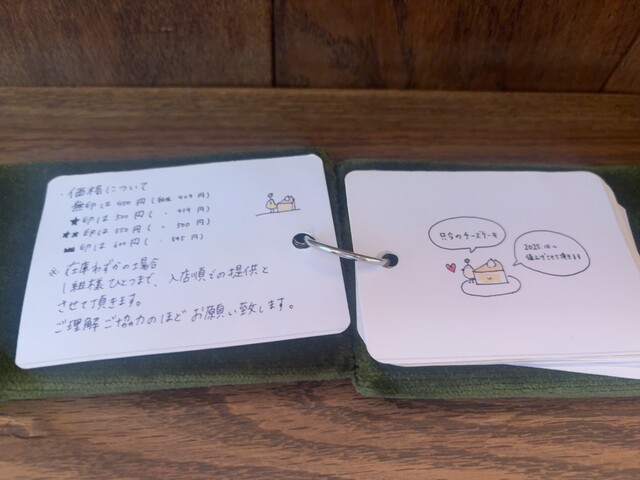 ・価格について
無印は 450 円 (税抜 409 円)
★印は 500 円 ( 〃 454 円)
★★印は 550 円 ( 〃 500 円)
印は 600 円 ( 〃 545 円)
※ 在庫わずかの場合
1組様ひとつまで、入店順での提供と
させて頂きます。
ご理解ご協力のほど お願い致します。
只今のチーズケーキ
2025.10~
値上げさせて頂きます